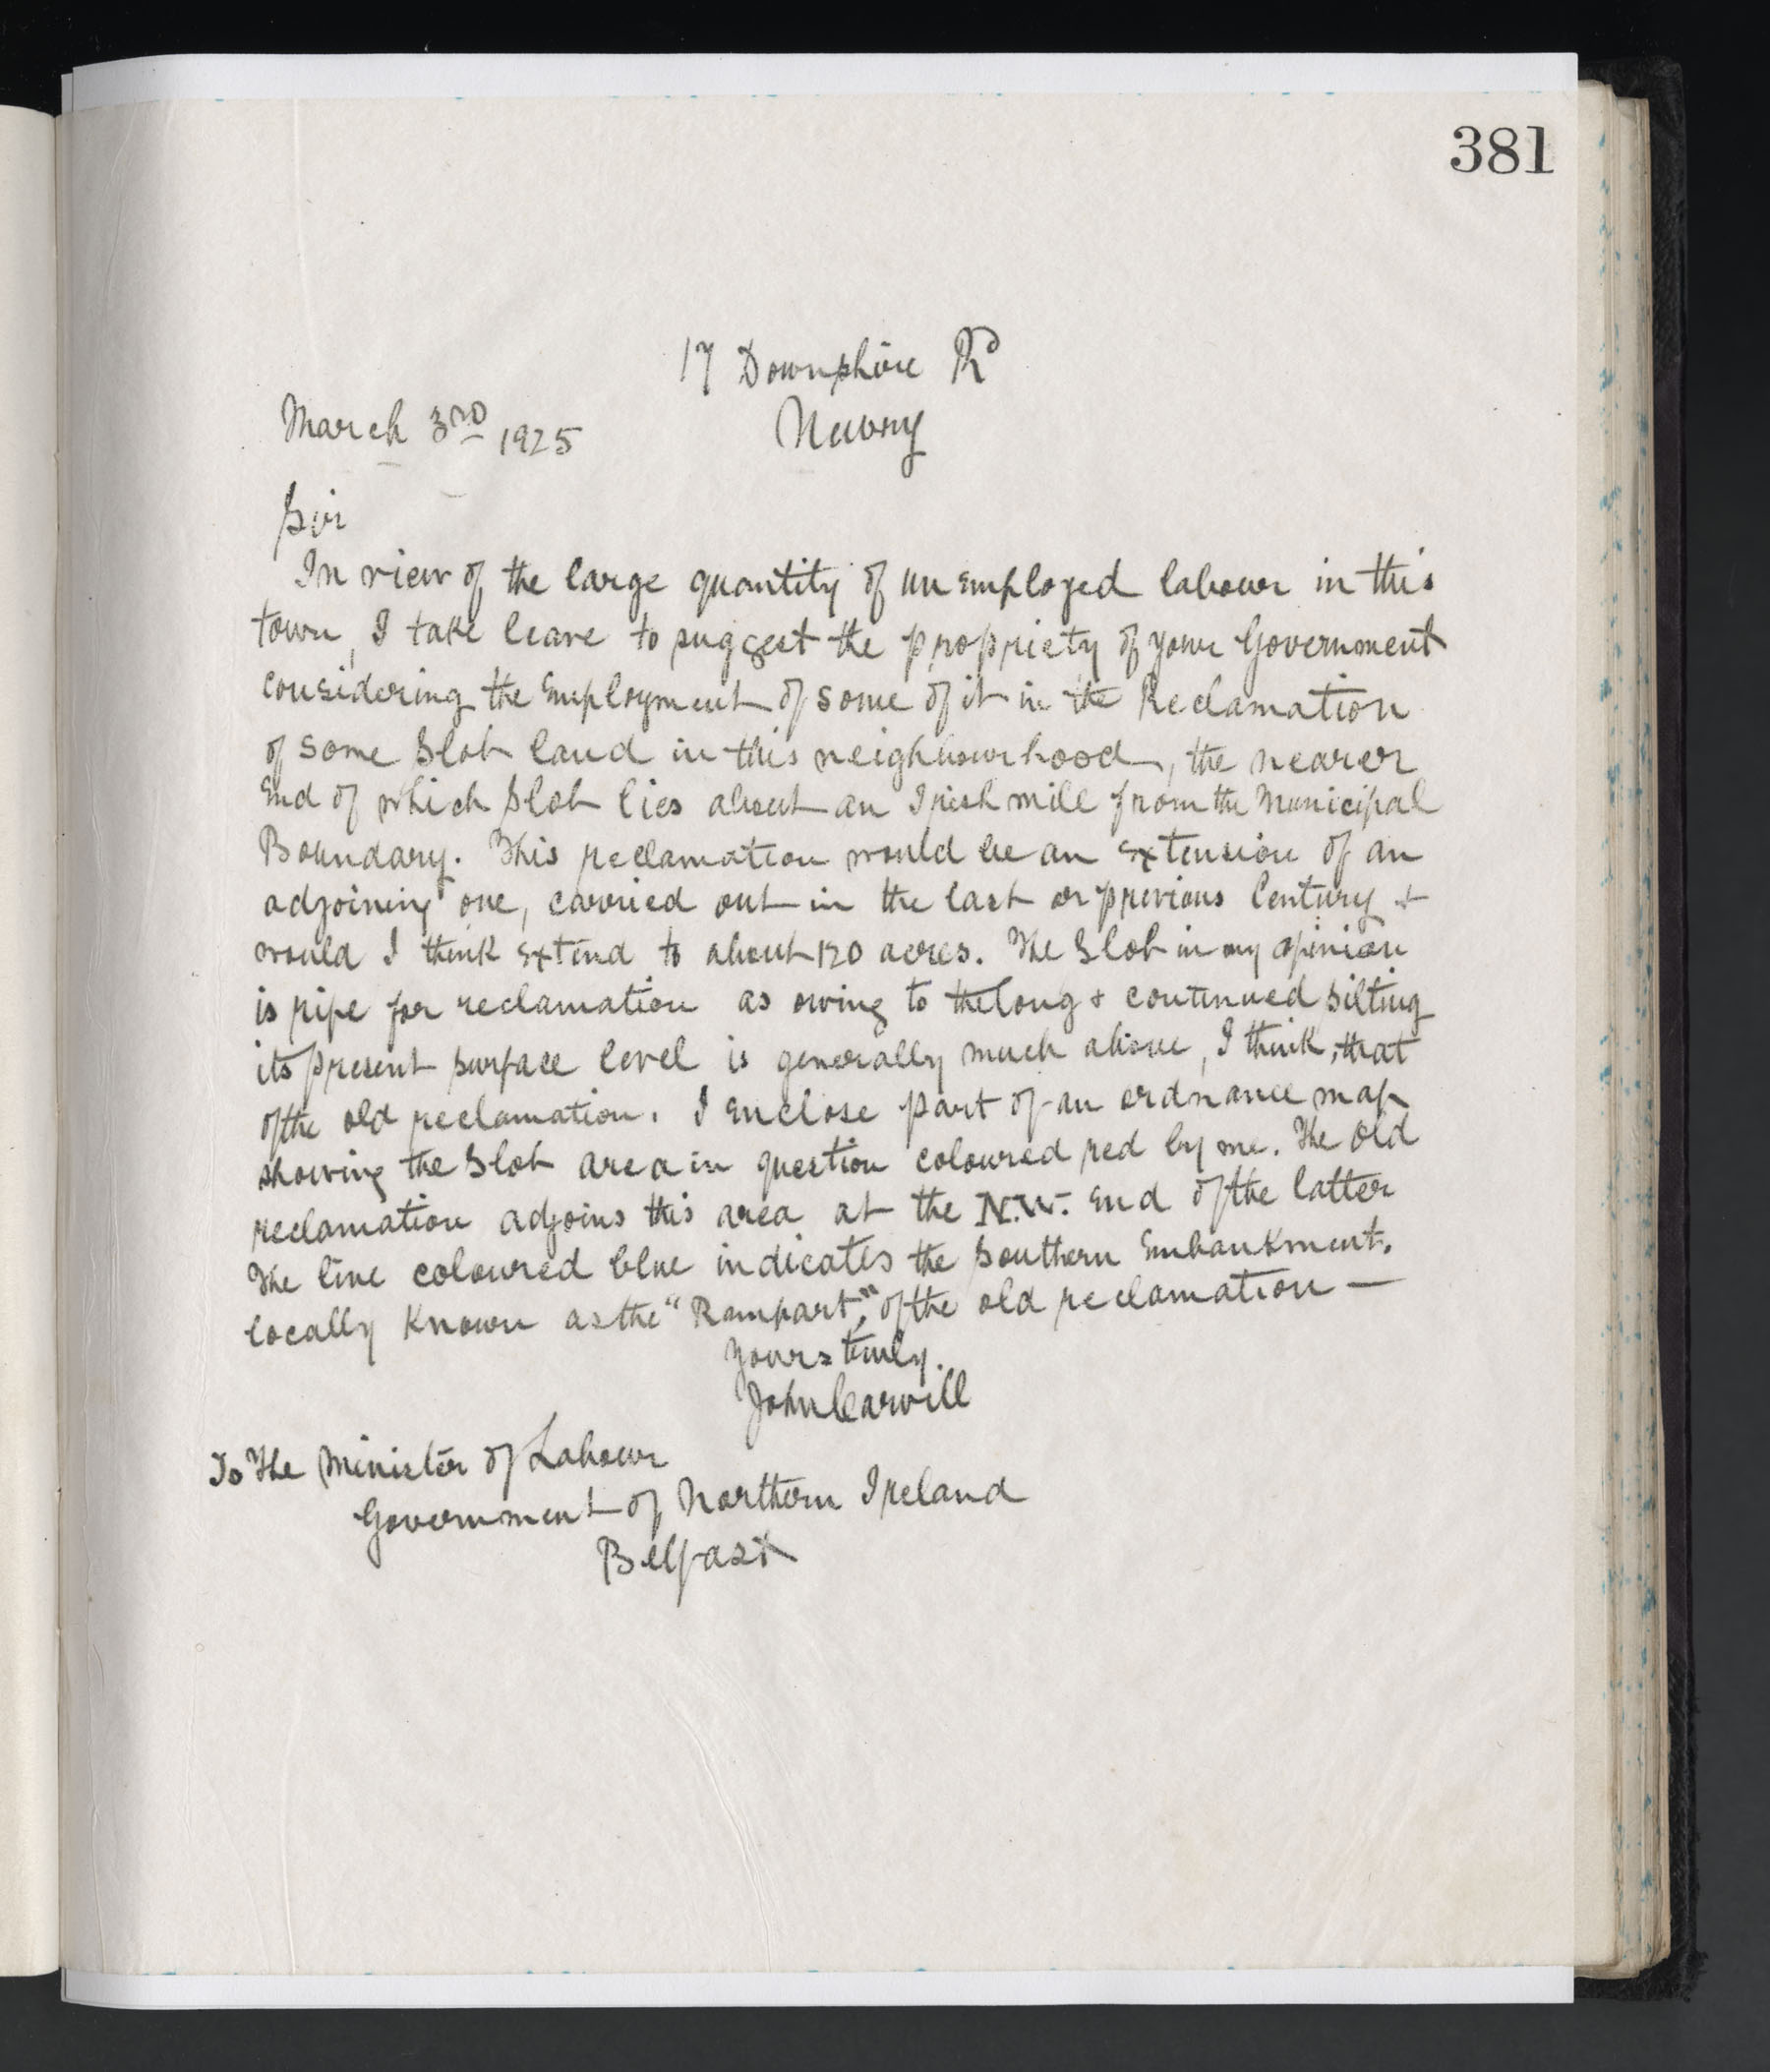 381
17 Downshire Rd
March 3RD 1925
Newry
Sir
In view of the large quantity of unemployed labour in this
town, I take leave to suggest the propriety of your Government
considering the Employment of some of it in the Reclamation
of some Slob land in this neighbourhood, the nearer
End of which Slob lies about an Irish mile from the Municipal
Boundary. This reclamation would be an extension of an
adjoining one, carried out in the last or previous Century &
would I think extend to about 120 acres. The Slob in my opinion
is ripe for reclamation as owing to the long & continued silting
its present surface level is generally much above, I think, that
of the old reclamation. I enclose part of an ordnance map
showing the Slob area in question coloured red by me. The Old
reclamation adjoins this area at the N.W. End of the latter
The line coloured blue indicates the Southern Embankment.
locally Known as the "Rampart", of the old reclamation —
Yours truly.
John Carvill
To The Minister of Labour
Government of Northern Ireland
Belfast